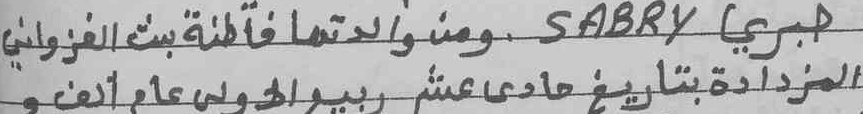 صبري SABRY. ومن والدتها فاطنة بنت الغزواني
المزدادة بتاريخ حادى عشر ربيع الاولى عام ألف و